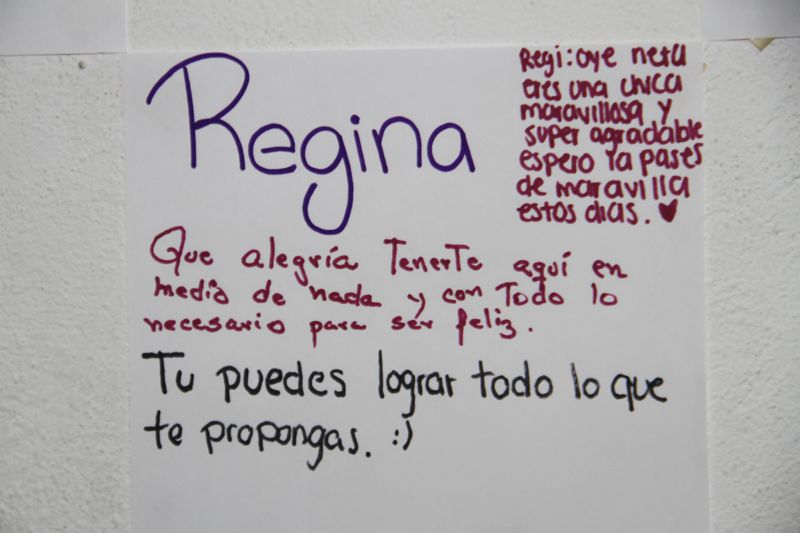 Regina
Regi: oye neta
eres una chica
maravillosa y
super agradable
espero la pases
de maravilla
estos dias. ♥
Que alegría Tenerte aquí en
medio de nada y con Todo lo
necesario para ser feliz.
Tu puedes lograr todo lo que
te propongas. :)